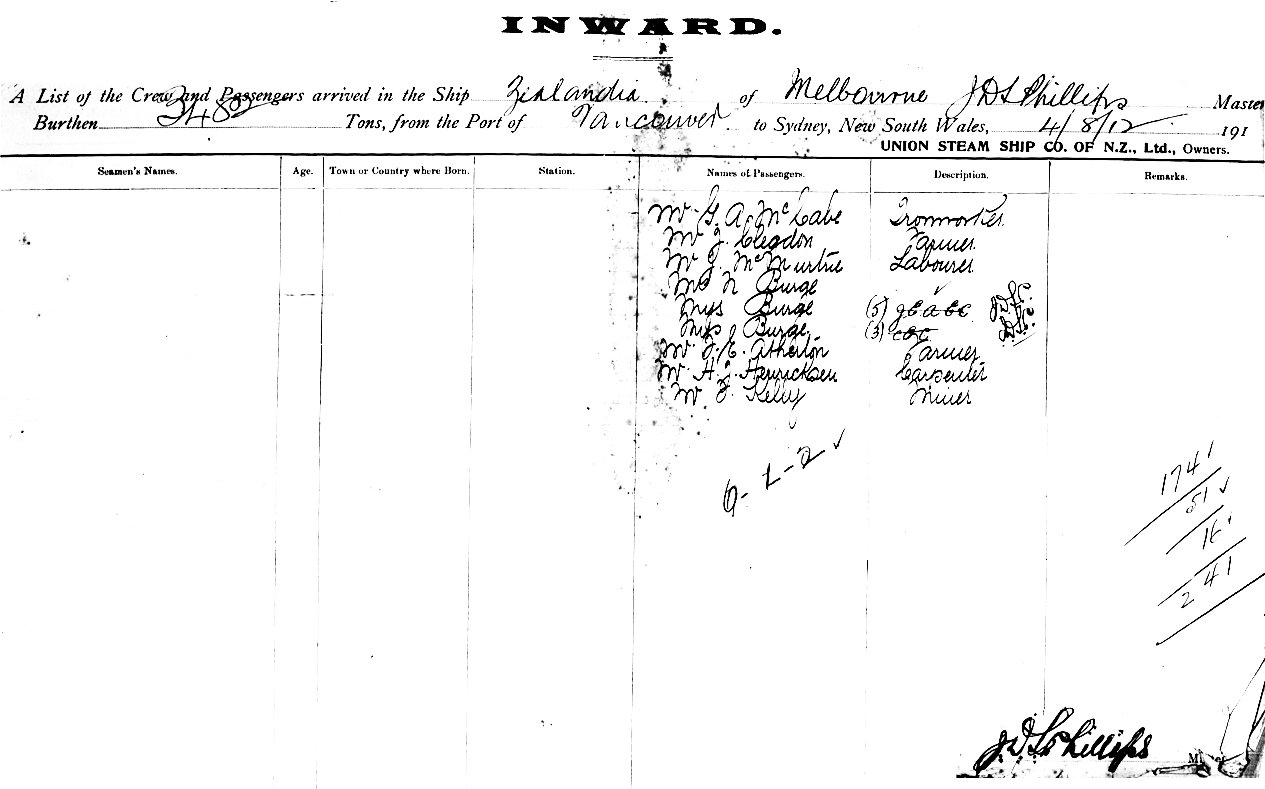 INWARD.
A List of the Crew and Passengers arrived in the Ship Zealandia of Melbourne J D S Phillips Master
Burthen 3480 Tons, from the Port of Vancouver to Sydney, New South Wales, 4/8/12 191
UNION STEAM SHIP CO. OF N.Z., Ltd., Owners.
Seamen's Names. Age. Town or Country where Born. Station. Names of Passengers. Description. Remarks.
Mr G. A. McCabe Ironworker
Mr J. Clegdon Farmer
Mr J. McMurtrie Labourer
N Burge
Miss Burge (5)
Miss Burge (3)
Mr J. E. Atherton Farmer
Mr H. J. Henricksen Carpenter
Mr J. Kelly Miner
6-1-2 ✓
174
51 ✓
16
241
J D S Phillips